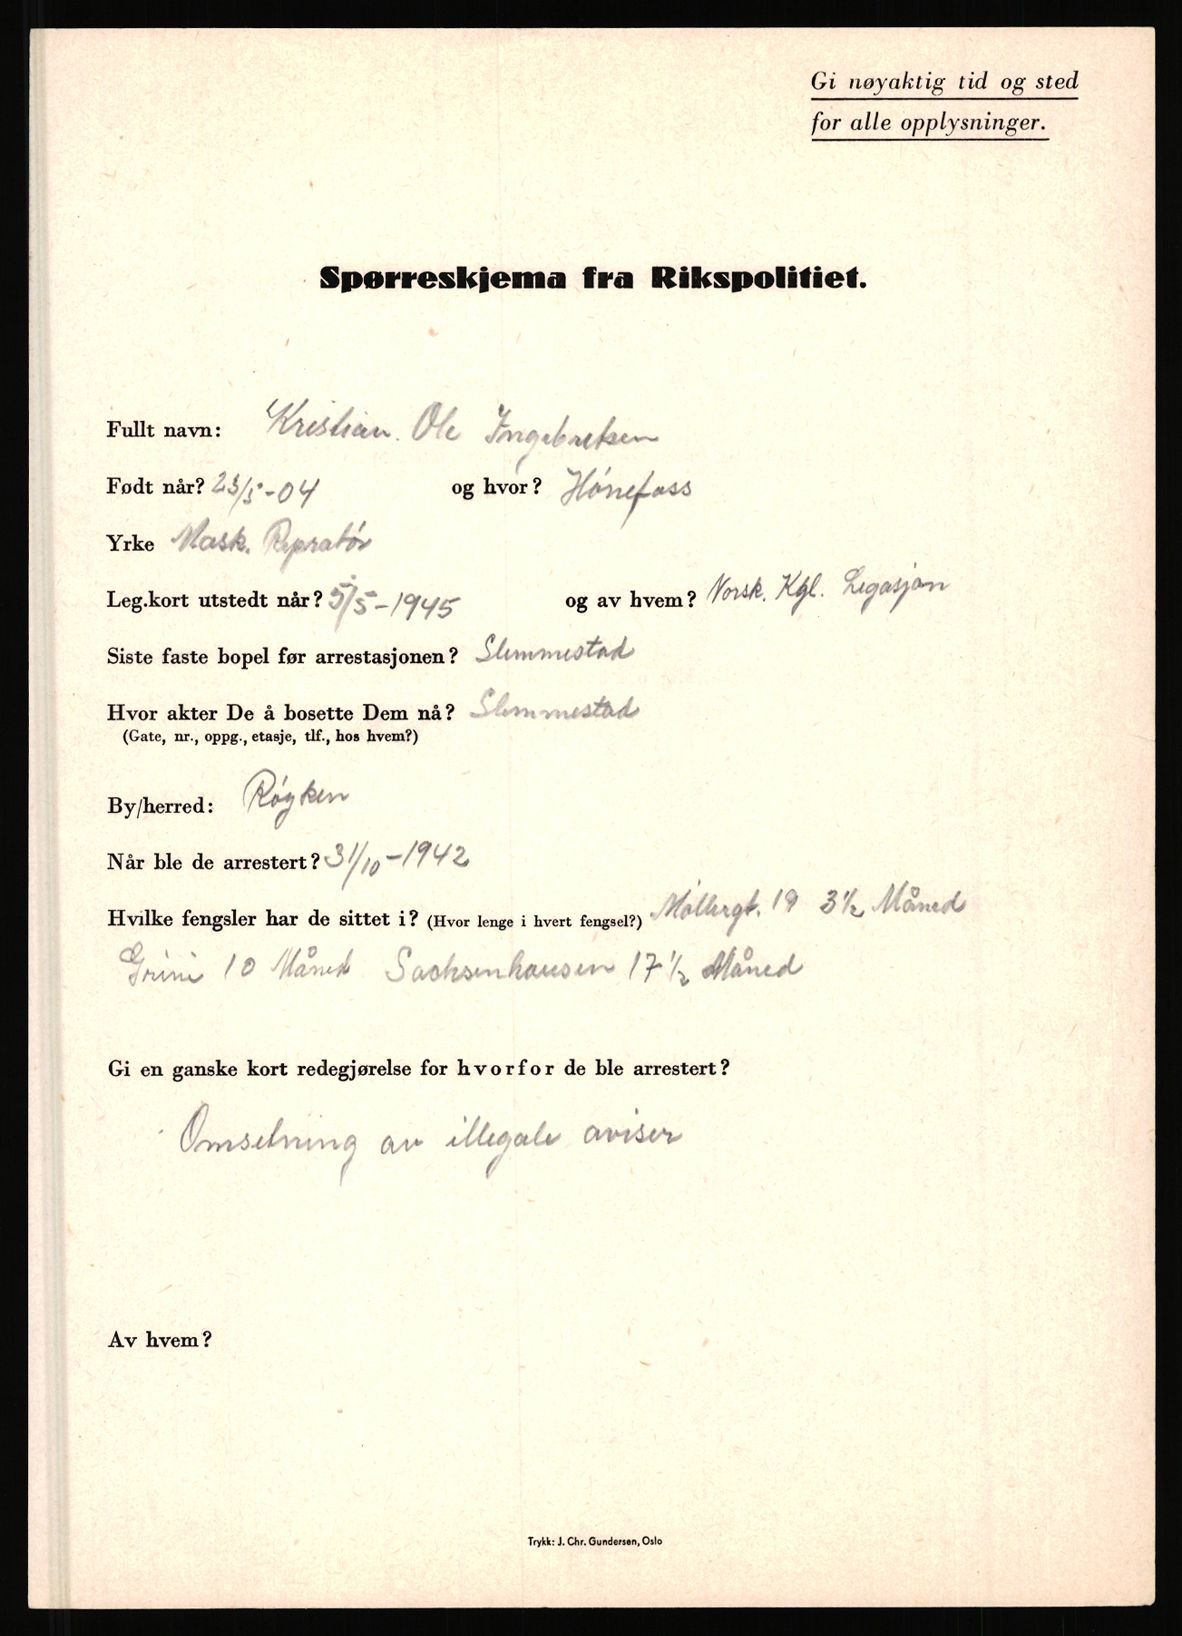 Gi nøyaktig tid og sted
for alle opplysninger.
Spørreskjema fra Rikspolitiet.
Fullt navn: Kristian. Ole Ingebretsen
Født når? 23/5-04 og hvor? Hónefoss
Yrke Mask. Repratór
Leg.kort utstedt når? 5/5-1945 og av hvem? Norsk. Kgl. Legasjon
Siste faste bopel før arrestasjonen? Slemmestad
Hvor akter De å bosette Dem nå? Slemmestad
(Gate, nr., oppg., etasje, tlf., hos hvem?)
By/herred: Róyken
Når ble de arrestert? 31/10-1942
Hvilke fengsler har de sittet i? (Hvor lenge i hvert fengsel?) Móllergt. 19 3½ Måned
Grini 10 Måned Sachsenhausen 17½ Måned
Gi en ganske kort redegjørelse for hvorfor de ble arrestert?
Omsetning av illegale aviser
Av hvem?
Trykk: J. Chr. Gundersen, Oslo